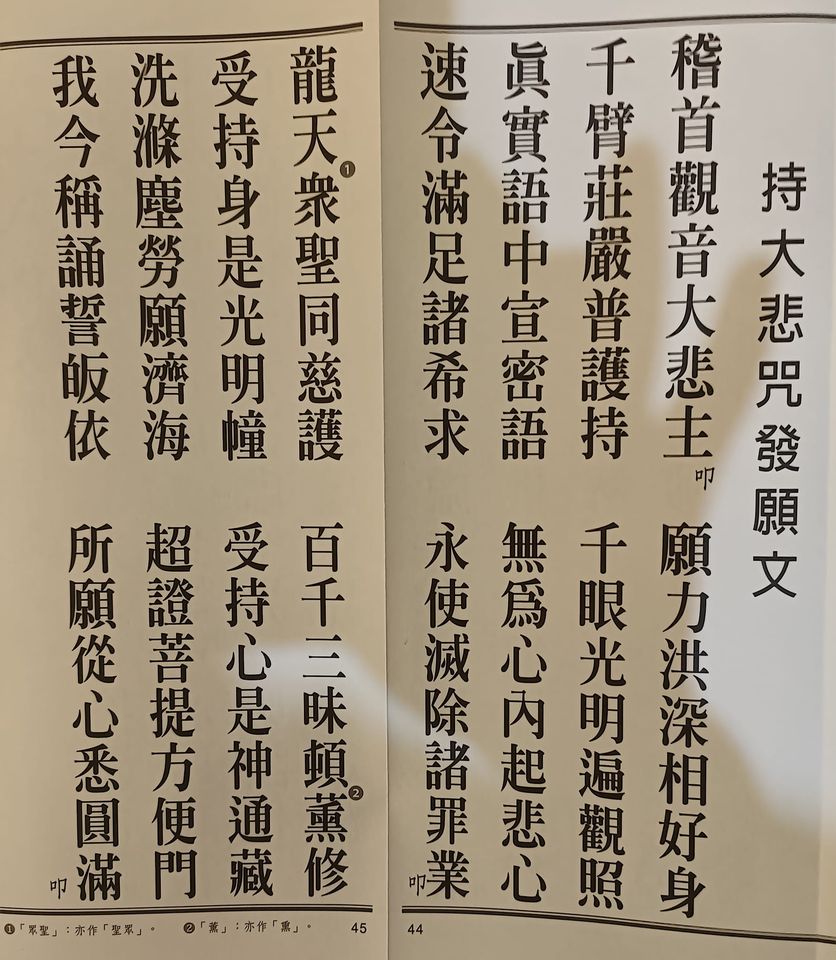 持大悲咒發願文
稽首觀音大悲主叩　願力洪深相好身
千臂莊嚴普護持　千眼光明遍觀照
眞實語中宣密語　無爲心內起悲心
速令滿足諸希求　永使滅除諸罪業叩
44
龍天❶衆聖同慈護　百千三昧頓❷薰修
受持身是光明幢　受持心是神通藏
洗滌塵勞願濟海　超證菩提方便門
我今稱誦誓皈依　所願從心悉圓滿叩
❶「眾聖」：亦作「聖眾」。　❷「薰」：亦作「熏」。
45